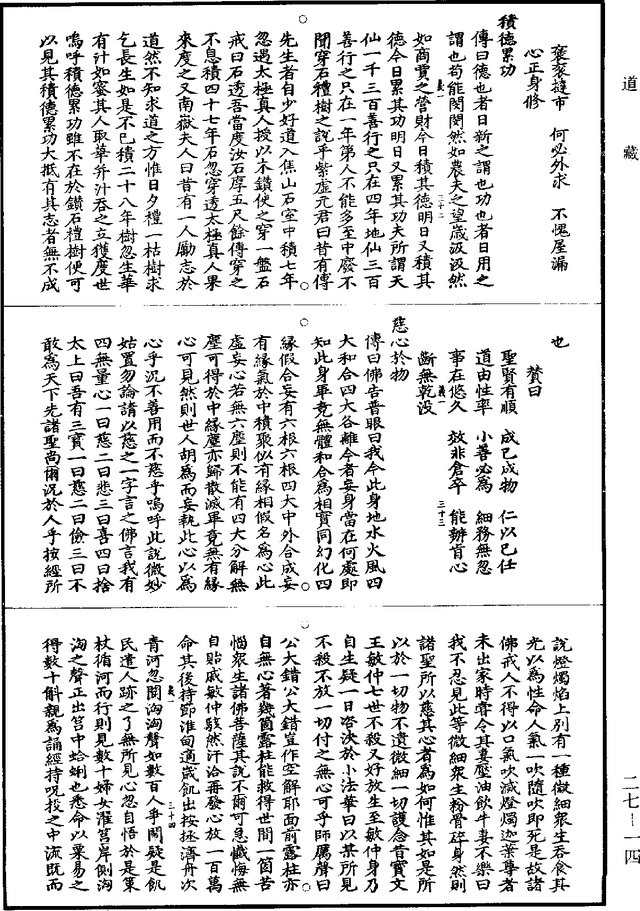 道藏
褒褒撻市　何必外求　不愧屋漏
心正身修
積德累功
傳曰德也者日新之謂也功也者日用之
謂也苟能閔閔然如農夫之望歲汲汲然
義一　三十二
如商賈之營財今日積其德明日又積其
德今日累其功明日又累其功夫所謂天
仙一千三百善行之只在四年地仙三百
善行之只在一年第人不能多至中廢不
聞穿石禮樹之說乎紫虛元君曰昔有傳
先生者自少好道入焦山石室中積七年
忽遇太極真人授以木鑽使之穿一盤石
戒曰石透吾當度汝石厚五尺餘傳穿之
不息積四十七年石忽穿透太極真人果
來度之又南嶽夫人曰昔有一人勵志於
道然不知求道之方惟日夕禮一枯樹求
乞長生如是不已積二十八年樹忽生華
有汁如蜜其人取華并汁吞之立獲度世
嗚呼積德累功雖不在於鑽石禮樹便可
以見其積德累功大抵有其志者無不成
也
贊曰
聖賢有順　成己成物　仁以己仕
道由性率　小善必為　細務無忽
事在悠久　效非倉卒　能辦肯心
義一　三十三
斷無乾没
慈心於物
傳曰佛告普眼曰我今此身地水火風四
大和合四大各離今者妄身當在何處即
知此身畢竟無體和合為相實同幻化四
緣假合妄有六根六根四大中外合成妄
有緣氣於中積聚似有緣相假名為心此
虛妄心若無六塵則不能有四大分解無
塵可得於中緣塵亦歸散滅畢竟無有緣
心可見然則世人胡為而妄執此心以為
心乎況不善用而不慈乎嗚呼此說微妙
姑置勿論請以慈之一字言之佛言我有
四無量心一曰慈二曰悲三曰喜四曰捨
太上曰吾有三寶一曰慈二曰儉三曰不
敢為天下先諸聖尚爾況於人乎按經所
說燈燭焰上別有一種微細衆生吞食其
光以為性命人氣一吹隨吹即死是故諸
佛戒人不得以口氣吹滅燈燭迦葉尊者
未出家時嘗令其妻壓油飲牛妻不樂曰
我不忍見此等微細衆生粉骨碎身然則
諸聖所以慈其心者為如何惟其如是所
以於一切物不遺微細一切護念昔寶文
王敏仲七世不殺又好放生至敏仲身乃
自生疑一日咨決於小法華曰以某所見
不殺不放一切付之無心可乎師厲聲曰
公大錯公大錯豈作空解耶面前露柱亦
自無心著幾箇露柱能救得世間一箇苦
惱衆生諸佛菩薩其說不爾可急懺悔無
自貽戚敏仲駭然汗洽再發心放一百萬
命其後持節淮甸適歲飢出按拯濟舟次
義一　三十四
青河忽聞洶洶聲如數百人爭鬨疑是飢
民遣人跡之了無所見心忽自悟於是策
杖循河而行則見數十婦女濯筥岸側洶
洶之聲正出筥中蛤蜊也悉命以粟易之
得數十斛親為誦經持呪投之中流既而
二七—一四